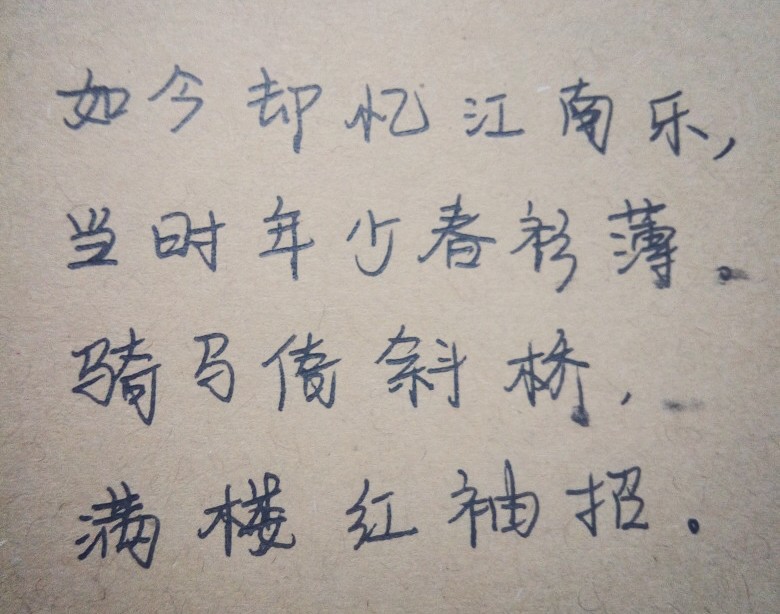 如今却忆江南乐,
当时年少春衫薄。
骑马倚斜桥,
满楼红袖招。